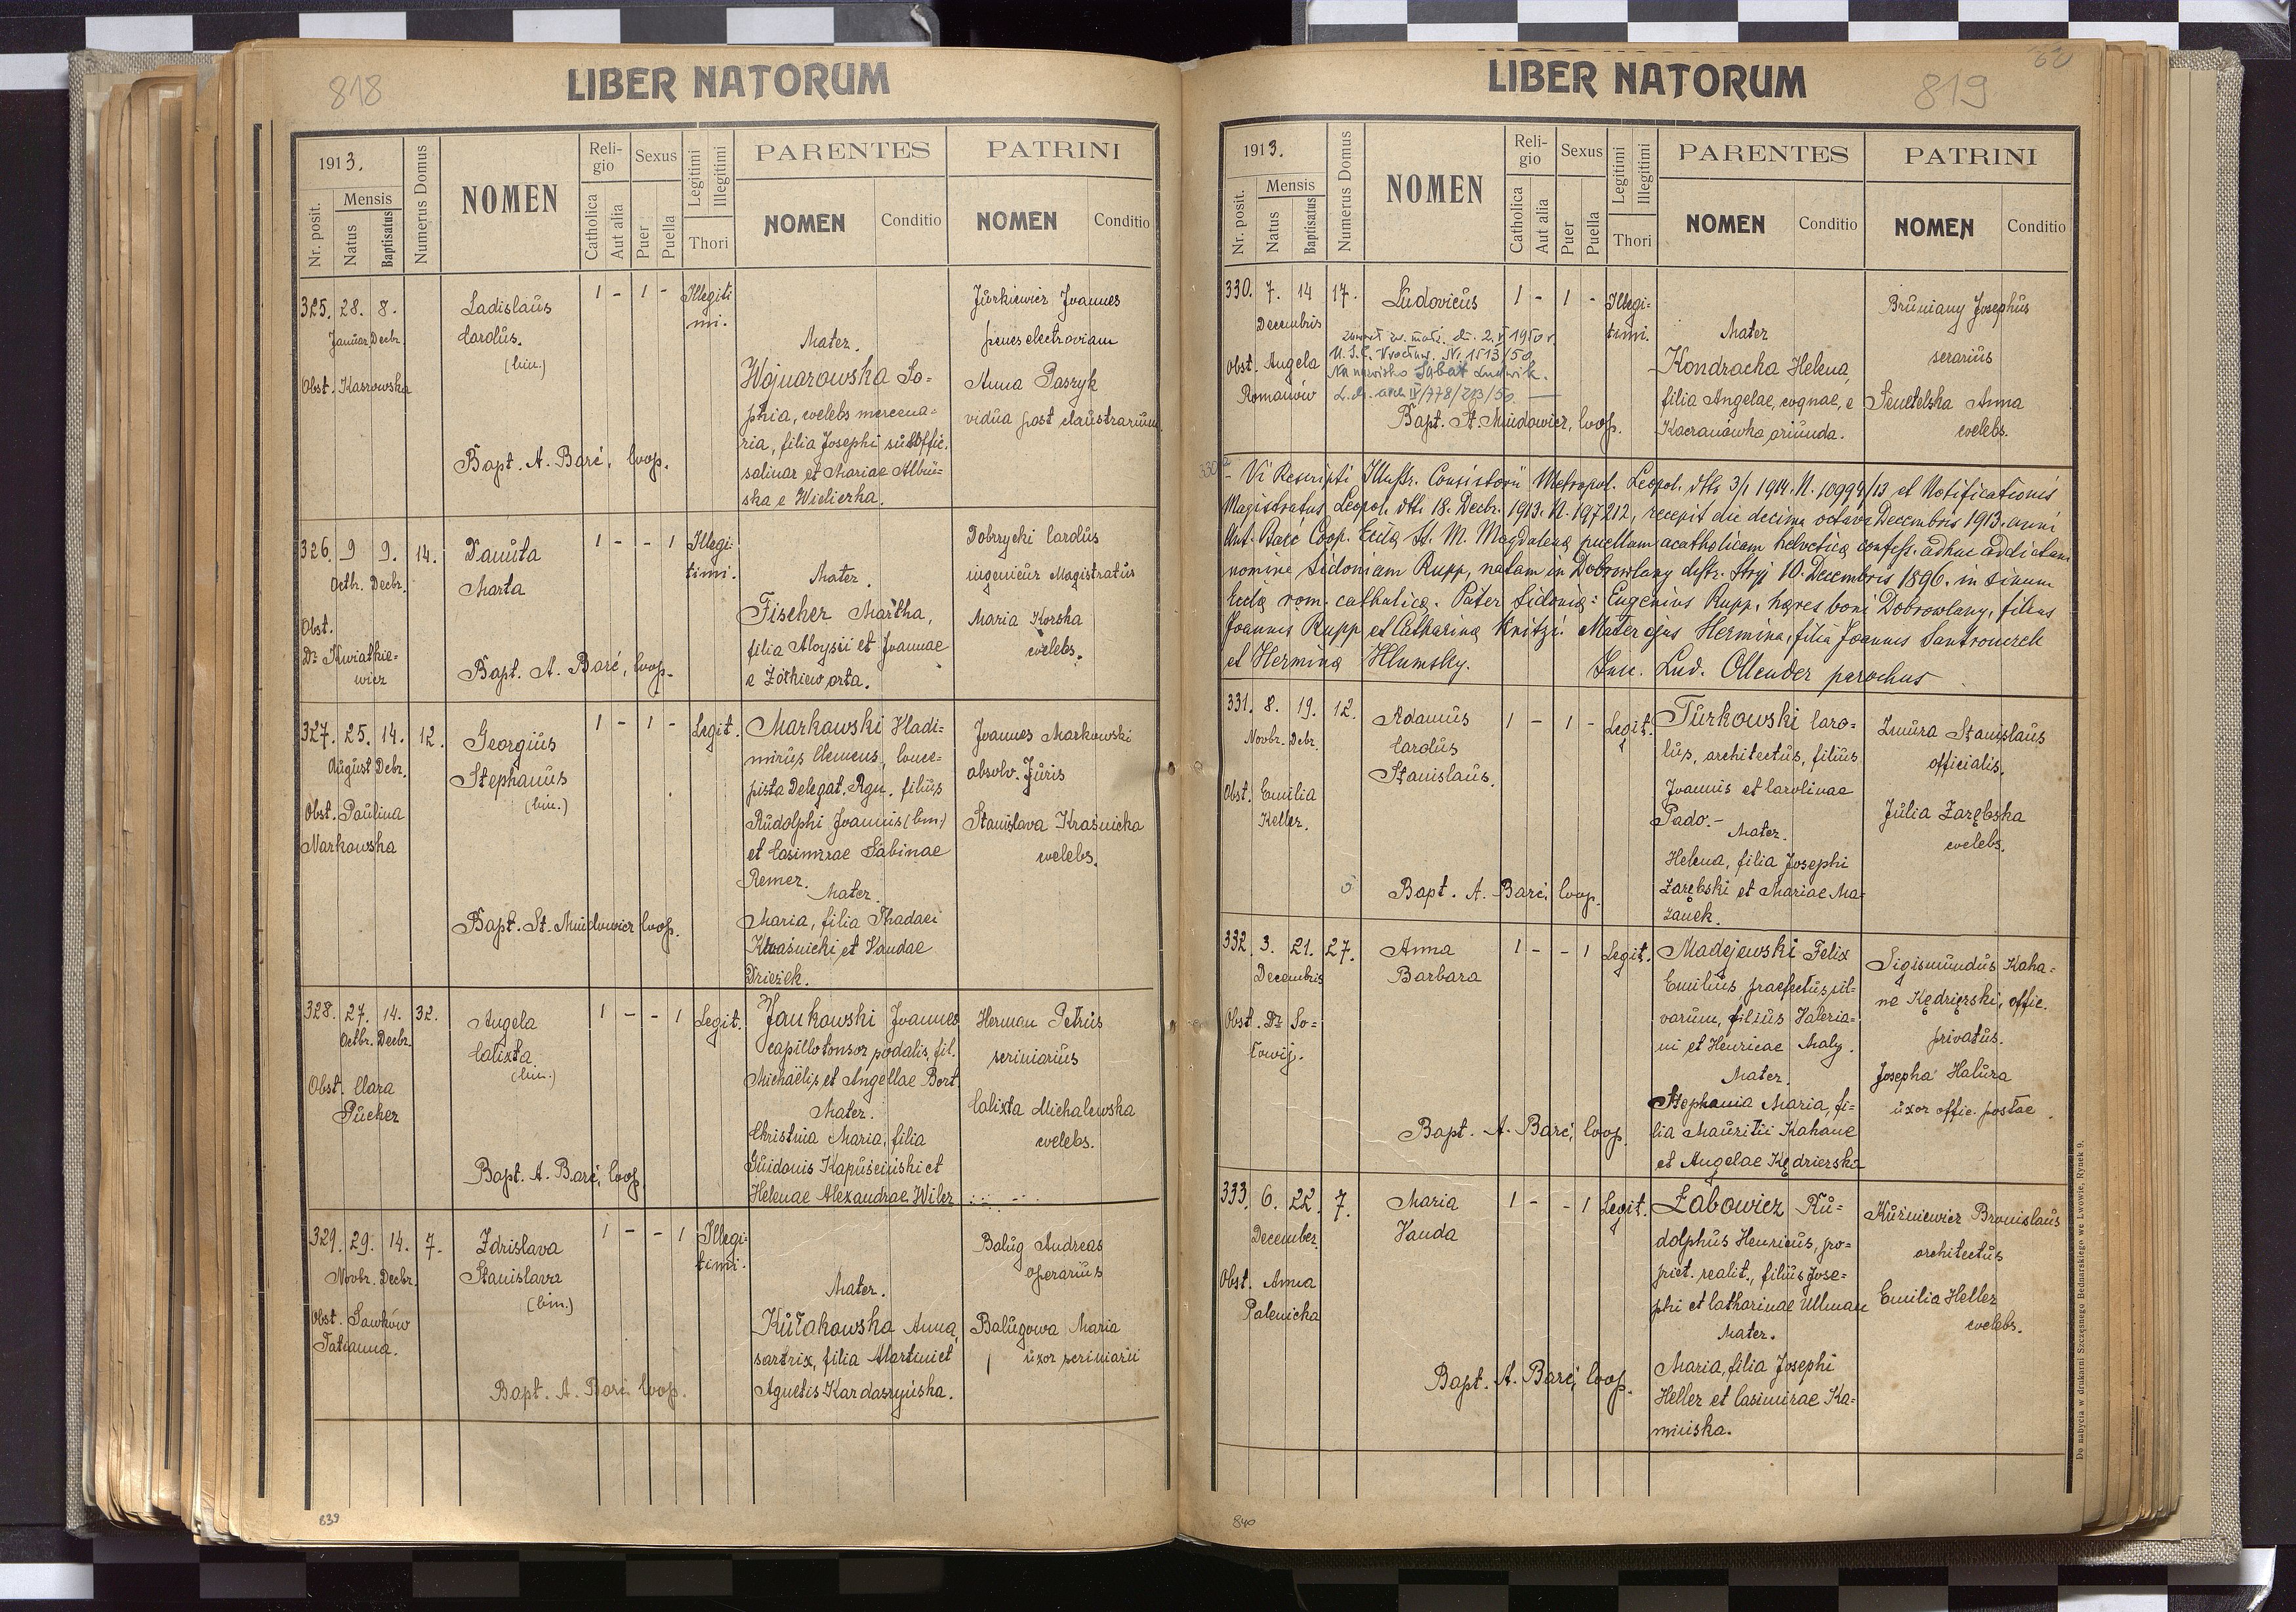 818
LIBER NATORUM
1913.
Mensis
Nr. posit.
Natus
Baptisatus
Numerus Domus
NOMEN
Reli-
gio
Catholica
Aut alia
Sexus
Puer
Puella
Legitimi
Illegitimi
Thori
PARENTES
NOMEN
Conditio
PATRINI
NOMEN
Conditio
325. 28. 8.
Januar. Decbr.
Obst. Kasrowska
Ladislaus
Carolus.
(bin.)
Bapt. A. Barć, Coop.
1 - 1 -
Illegiti
mi.
Mater.
Wojnarowska So-
phia, coelebs mercena-
ria, filia Josephi suboffic.
salinar et Mariae Albiń-
ska e Wieliczka.
Jurkiewicz Joannes
penes electroviam
Anna Paszyk
vidua post claustrarium
326. 9 9. 14.
Octb. Decbr.
Obst.
Dr Kwiatkie-
wicz
Danuta
Marta
Bapt. A. Barć, Coop.
1 - - 1
Illegi-
timi.
Mater.
Fischer Martha,
filia Aloysii et Joannae
e Żółkiew orta.
Dobrzycki Carolus
ingenieur Magistratus
Maria Korska
coelebs.
327. 25. 14. 12.
August Debr.
Obst. Paulina
Narkowska
Georgius
Stephanus
(bin.)
Bapt. St. Mudowicz Coop.
1 - 1 -
Legit.
Markowski Vladi-
mirus Clemens, conce-
pista Delegat. Agn. filius
Rudolphi Joannis (bin.)
et Casimirae Sabinae
Remer.
Mater.
Maria, filia Thadaei
Kraśnicki et Vandae
Drieżek.
Joannes Markowski
absolv. Juris
Stanislava Kraśnicka
coelebs.
328. 27. 14. 32.
Octbr. Decbr.
Obst. Clara
Pucher
Angela
Calixta
(bin.)
Bapt. A. Barć, Coop.
1 - - 1
Legit.
Jankowski Joannes
capillotonsor podalis, fil.
Michaëlis et Angellae Bort
Mater.
Christina Maria, filia
Guidonis Kapuściński et
Helenae Alexandrae Wiler
Herman Petrus
scriniarius
Calixta Michalewska
coelebs.
329. 29. 14. 7.
Novbr. Decbr.
Obst. Sawków
Tatianna.
Zdzislava
Stanislava
(bin.)
Bapt. A. Barć Coop.
1 - - 1
Illegi-
timi.
Mater.
Kułakowska Anna,
sartrix, filia Martini et
Agnetis Kardaszyńska.
Balug Andreas
operarius
Balugowa Maria
uxor scriniarii
839
819
LIBER NATORUM
1913.
Mensis
Nr. posit.
Natus
Baptisatus
Numerus Domus
NOMEN
Reli-
gio
Catholica
Aut alia
Sexus
Puer
Puella
Legitimi
Illegitimi
Thori
PARENTES
NOMEN
Conditio
PATRINI
NOMEN
Conditio
330. 7. 14 17.
Decembris
Obst. Angela
Romanów
Ludovicus
zawarł zw. małż. dn. 2.V 1950 r.
U.S.C. Wrocław. Nr 1513/50
Na nazwisko Sabat Ludwik.
L. dz. arch IV/778/213/50.
Bapt. St. Mudowicz, Coop.
1 - 1 -
Illegi-
timi.
Mater
Kondracka Helena,
filia Angelae, cognae, e
Kaczanówka oriunda.
Bruniany Josephus
serarius
Senetelska Anna
coelebs.
330a
- Vi Rescripti Illustr. Consistorii Metropol. Leopol. dtto 3/1 1914. N. 10994/13 et Notificationis
Magistratus Leopol. dtt. 18. Decbr. 1913. N. 197212, recepit die decima octava Decembris 1913. anni
Ant. Barć Coop. Eccla St. M. Magdalena puellam acatholicam helvetica confess. adhuc addictam
nomine Sidoniam Rupp, natam in Dobrowlany distr. Stryj 10. Decembris 1896. in sinum
Eccla rom. catholica. Pater Sidonia: Eugenius Rupp, hares boni Dobrowlany, filius
Joannis Rupp et Catharina Knitzi. Mater ejus Hermina, filia Joannis Santrouczek
et Hermina Hlumsky.
Insc. Lud. Ollender parochus
331. 8. 19. 12.
Novbr. Debr.
Obst. Emilia
Keller.
Adamus
Carolus
Stanislaus
Bapt. A. Barć, Coop.
1 - 1 -
Legit.
Turkowski Caro-
lus, architectus, filius
Joannis et Carolinae
Pado. -
Mater.
Helena, filia Josephi
Zarębski et Mariae Ma-
zanek.
Zmura Stanislaus
officialis.
Julia Zarębska
coelebs.
332. 3. 21. 27.
Decembris
Obst. Dr So-
łowij.
Anna
Barbara
Bapt. A. Barć, Coop.
1 - - 1
Legit.
Madejewski Felix
Emilius praefectus sil-
varum, filius Valeria-
ni et Henricae Maly.
Mater.
Stephania Maria, fi-
lia Mauritii Kahane
et Angelae Kędzierska
Sigismundus Kaha-
ne Kędzierski, offic.
privatus.
Josepha Halura
uxor offic. postae.
333. 6. 22. 7.
December.
Obst. Anna
Palenicka
Maria
Vanda
Bapt. A. Barć, Coop.
1 - - 1
Legit.
Żabowicz Ru-
dolphus Henricus, pro-
priet. realit., filius Jose-
phi et Catharinae Ullman
Mater.
Maria, filia Josephi
Heller et Casimirae Ka-
mińska.
Kuźniewicz Bronislaus
architectus
Emilia Heller
coelebs.
840
Do nabycia w drukarni Szczęsnego Bednarskiego we Lwowie, Rynek 9.